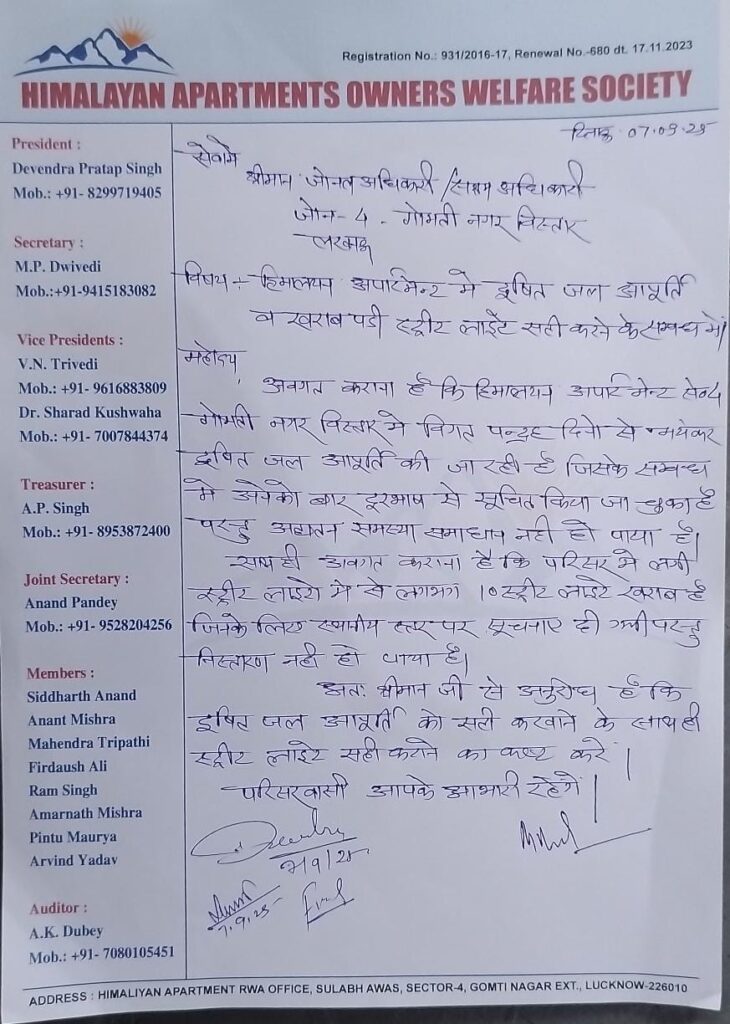 Registration No.: 931/2016-17, Renewal No.-680 dt. 17.11.2023
HIMALAYAN APARTMENTS OWNERS WELFARE SOCIETY
President :
Devendra Pratap Singh
Mob.: +91- 8299719405
Secretary :
M.P. Dwivedi
Mob.:+91-9415183082
Vice Presidents :
V.N. Trivedi
Mob.: +91- 9616883809
Dr. Sharad Kushwaha
Mob.: +91- 7007844374
Treasurer :
A.P. Singh
Mob.: +91- 8953872400
Joint Secretary :
Anand Pandey
Mob.: +91- 9528204256
Members :
Siddharth Anand
Anant Mishra
Mahendra Tripathi
Firdaush Ali
Ram Singh
Amarnath Mishra
Pintu Maurya
Arvind Yadav
Auditor :
A.K. Dubey
Mob.: +91- 7080105451
दिनांक 07.09.25
सेवामे
श्रीमान जोनल अधिकारी / अधिकारी
जोन-4 - गोमती नगर विस्तार
लखनऊ
विषय :- हिमालयन अपार्टमेन्ट मे दूषित जल आपूर्ति
व खराब पडी स्ट्रीट लाईटे सही करने के सम्बन्ध में।
महोदय,
अवगत कराना है कि हिमालयन अपार्टमेन्ट से०4
गोमती नगर विस्तार मे विगत पन्द्रह दिनो से भयंकर
दूषित जल आपूर्ति की जा रही है जिसके सम्बन्ध
मे अनेको बार दूरभाष से सूचित किया जा चुका है
परन्तु अद्यतन समस्या समाधान नही हो पाया है।
साथ ही अवगत कराना है कि परिसर मे लगी
स्ट्रीट लाइटो मे से लगभग 10 स्ट्रीट लाईटे खराब है
जिनके लिए स्थानीय स्तर पर सूचनाए दी गयी परन्तु
निस्तारण नही हो पाया है।
अतः श्रीमान जी से अनुरोध है कि
दूषित जल आपूर्ति को सही करवाने के साथ ही
स्ट्रीट लाईटे सही कराने का कष्ट करे।
परिसरवासी आपके आभारी रहेगे।
7/9/25
7.9.25
ADDRESS : HIMALIYAN APARTMENT RWA OFFICE, SULABH AWAS, SECTOR-4, GOMTI NAGAR EXT., LUCKNOW-226010